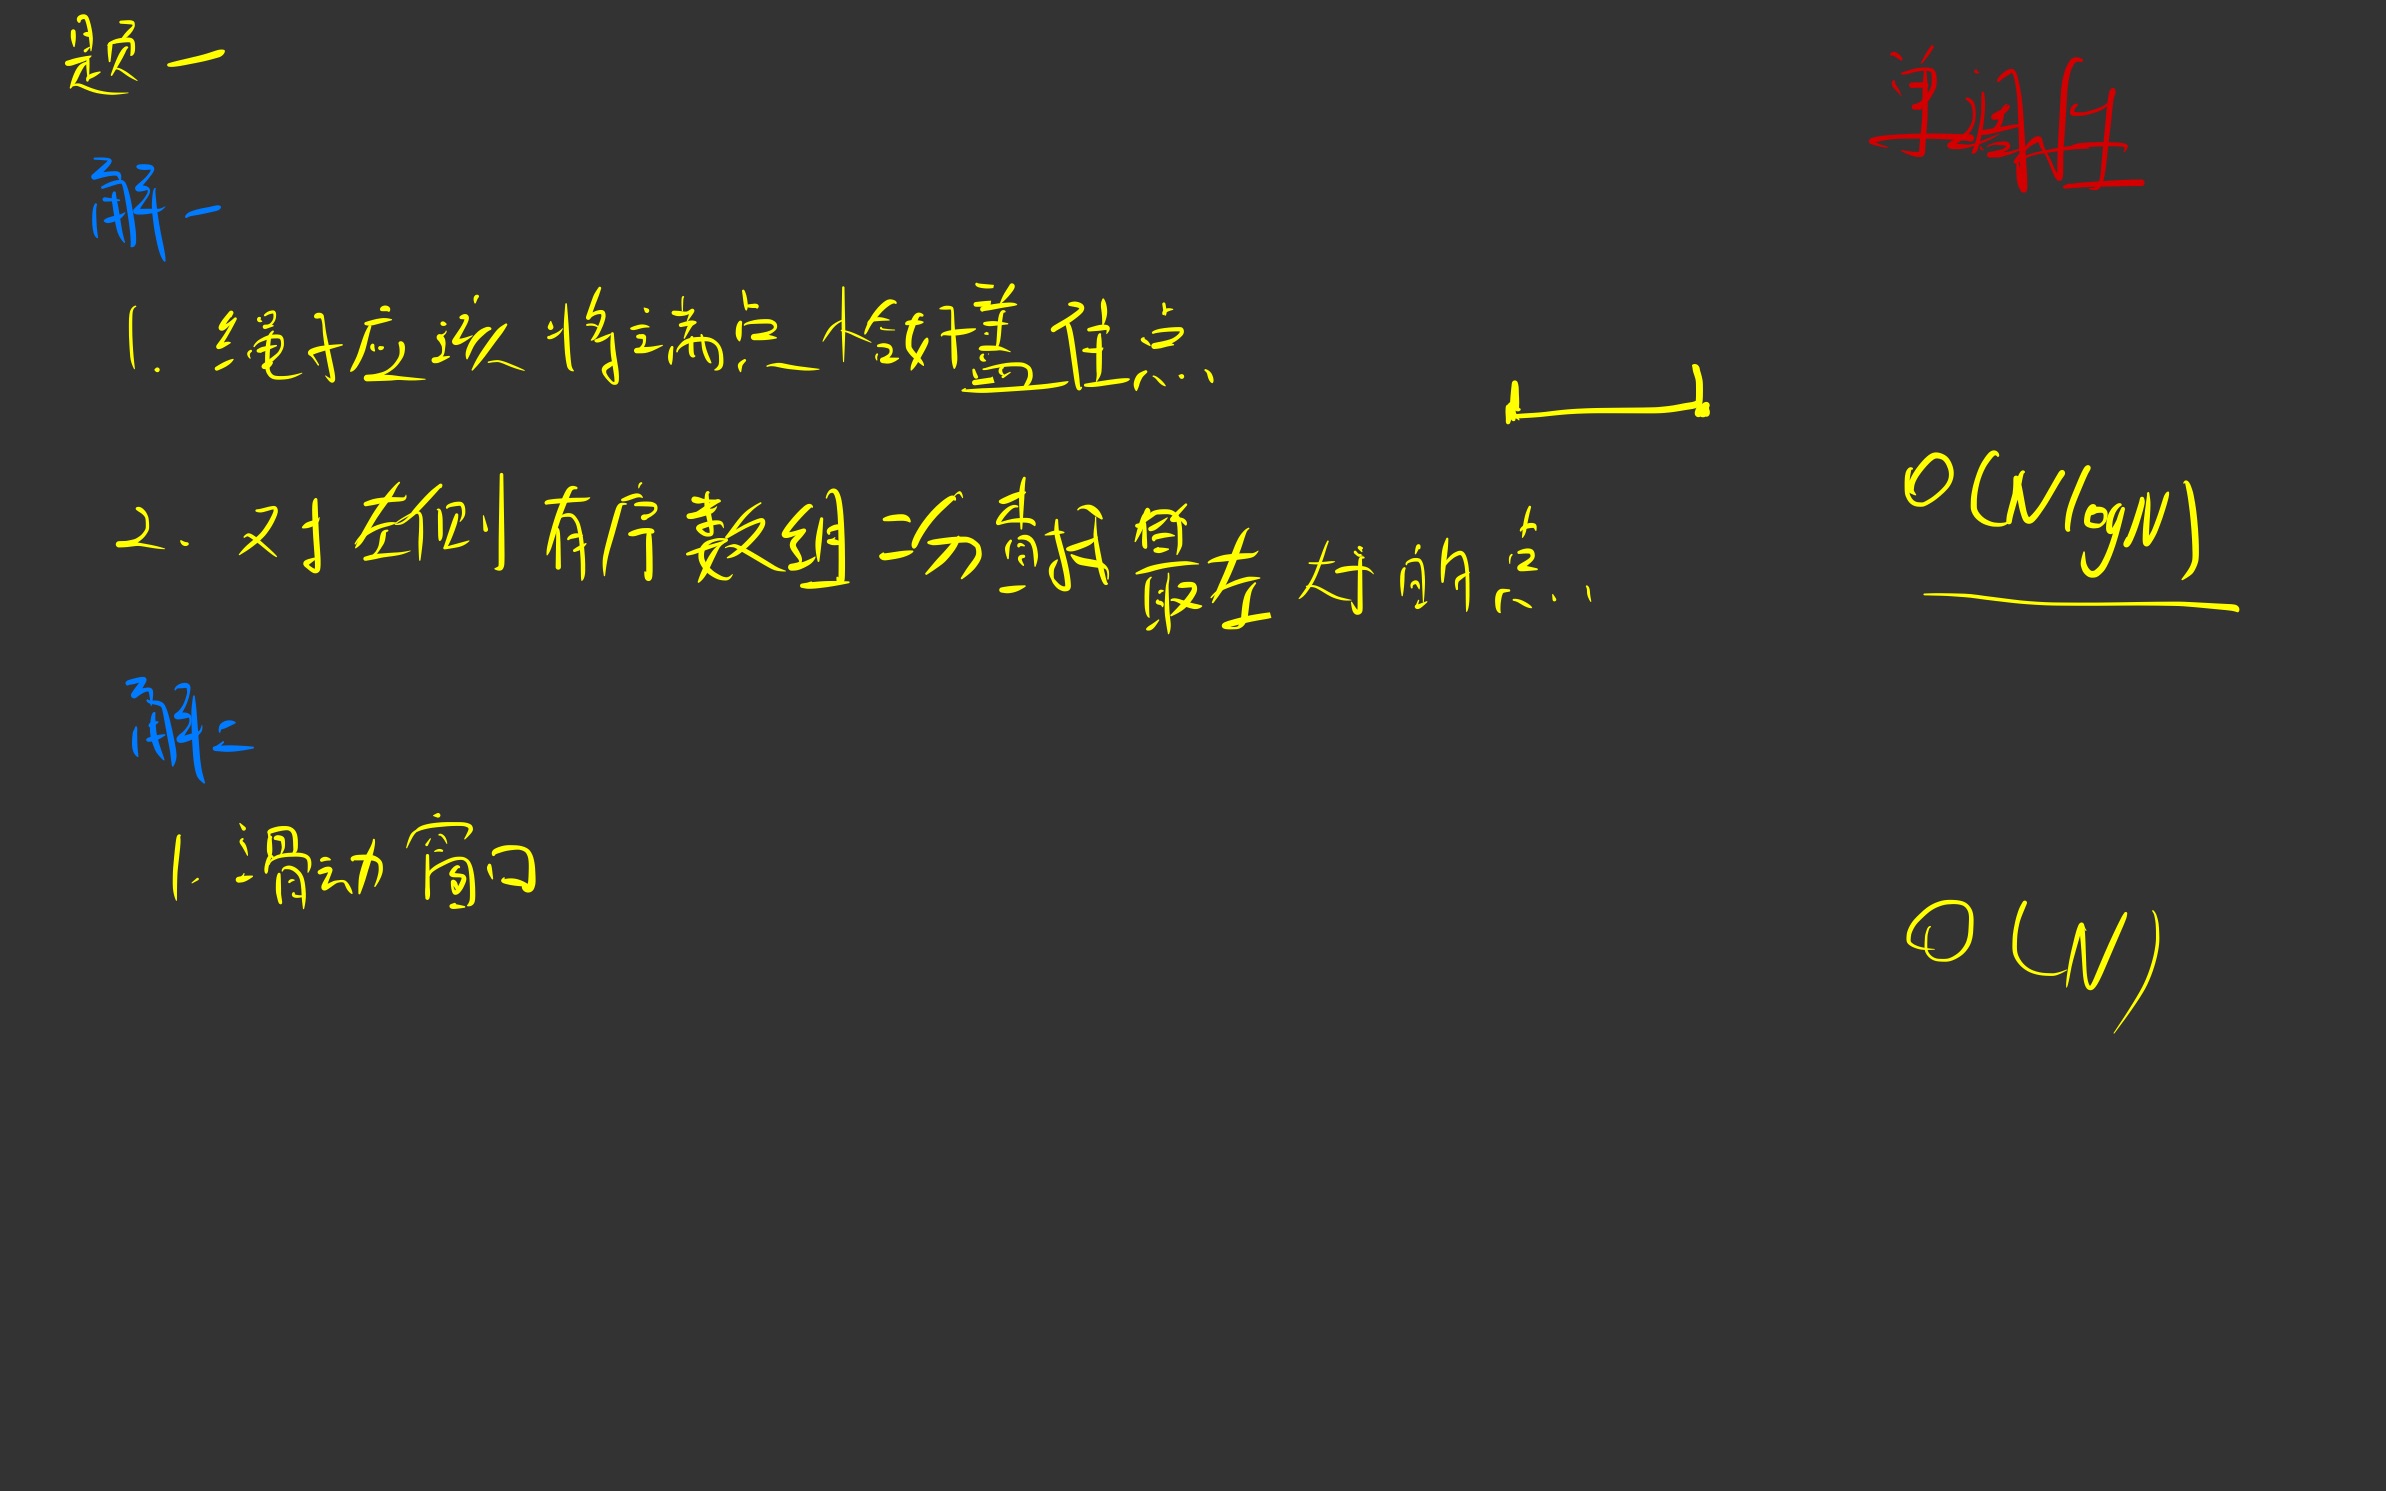 题一
单调性
解一
1. 绳子应该将结点放最盖止点
2. 对左到有序数组二分查找最左大于的点
O(NlogN)
解二
1. 滑动窗口
O(N)